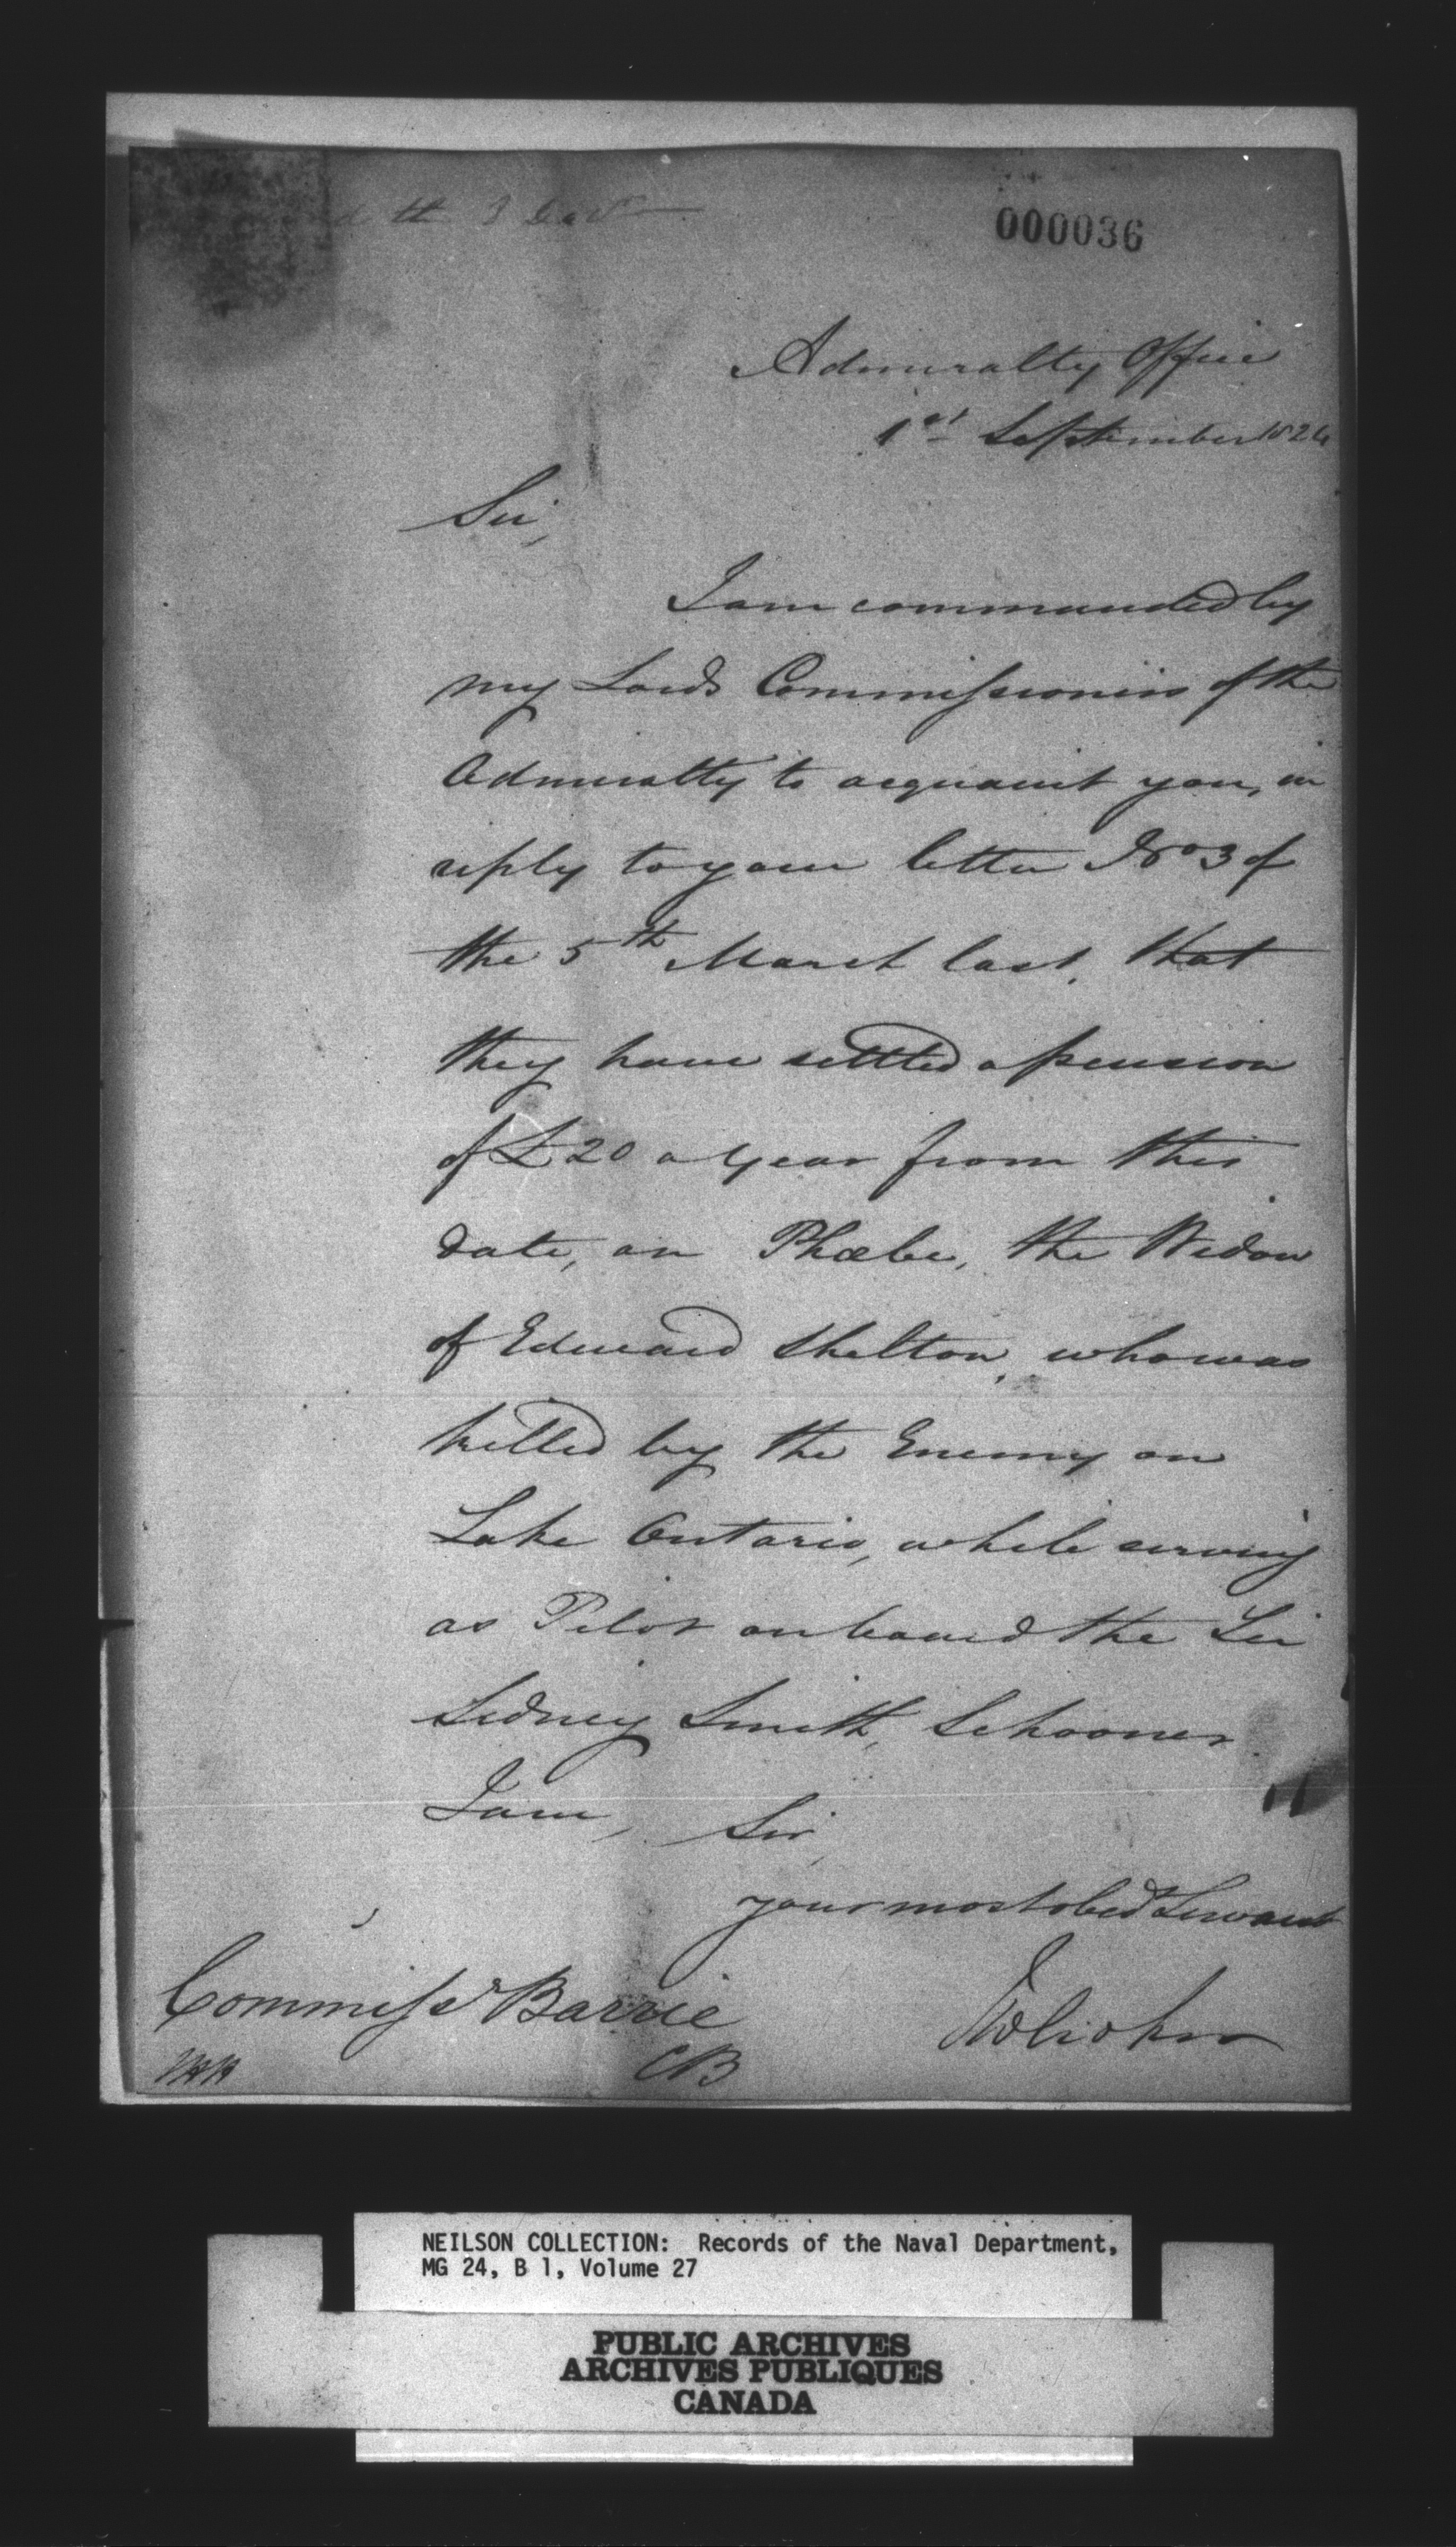 000036
Admiralty Office
1st September 1824
Sir,
I am commanded by
my Lords Commissioners of the
Admiralty to acquaint you, in
reply to your letter No 3 of
the 5th March last, that
they have settled a pension
of £20 a year from this
date, on Phœbe, the Widow
of Edward Shelton, who was
killed by the Enemy on
Lake Ontario, while serving
as Pilot on board the Sir
Sidney Smith, Schooner
I am, Sir,
your most obedt Servant
Commissr Barrie
CB
NEILSON COLLECTION: Records of the Naval Department,
MG 24, B 1, Volume 27
PUBLIC ARCHIVES
ARCHIVES PUBLIQUES
CANADA